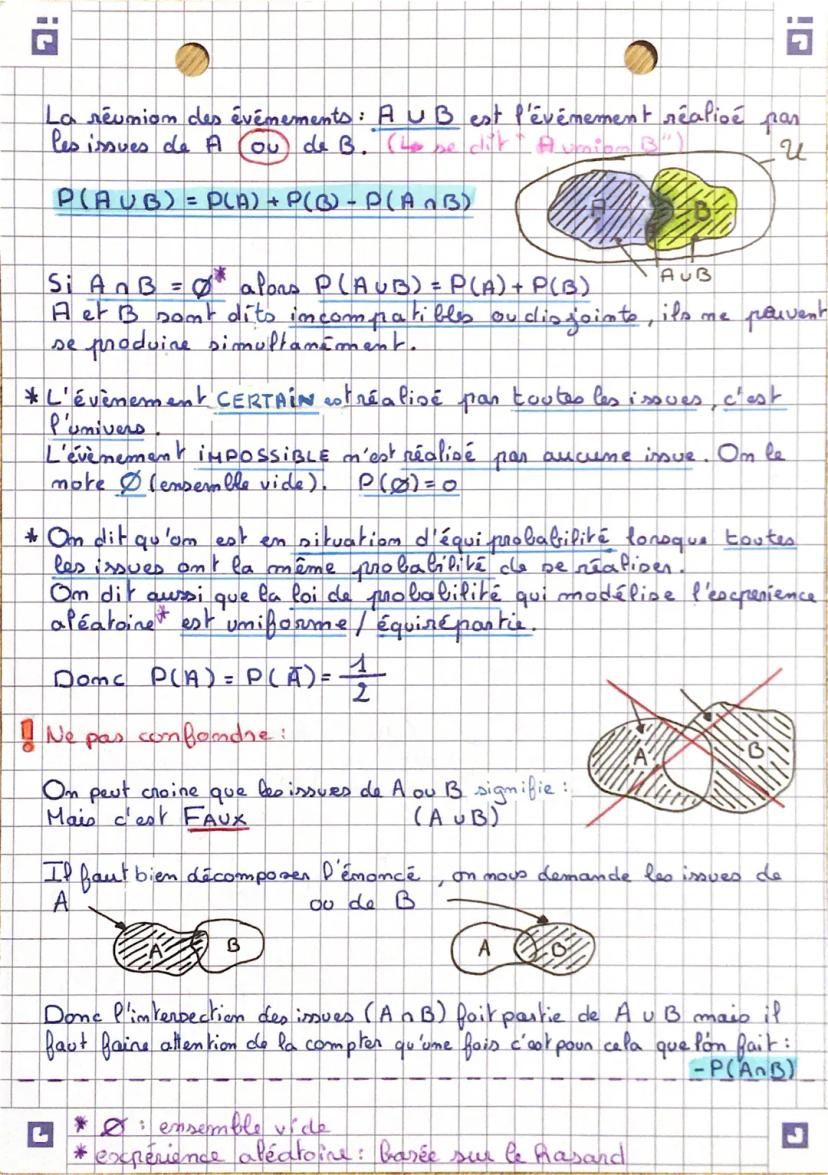 La réunion des événements : A ∪ B est l'événement réalisé par
les issues de A ou de B. (↳ se dit "A union B")
U
P(A ∪ B) = P(A) + P(B) - P(A ∩ B)
A B
A∪B
Si A ∩ B = Ø* alors P(A ∪ B) = P(A) + P(B)
A et B sont dits incompatibles ou disjoints, ils ne peuvent
se produire simultanément.
* L'évènement CERTAIN est réalisé par toutes les issues, c'est
l'univers.
L'évènement IMPOSSIBLE n'est réalisé par aucune issue. On le
note Ø (ensemble vide). P(Ø) = 0
* On dit qu'on est en situation d'équiprobabilité lorsque toutes
les issues ont la même probabilité de se réaliser.
On dit aussi que la loi de probabilité qui modélise l'experience
aléatoire* est uniforme / équirépartie.
Donc P(A) = P(Ā) = 1/2
! Ne pas confondre :
A B
On peut croire que les issues de A ou B signifie :
Mais c'est FAUX (A ∪ B)
Il faut bien décomposer l'énoncé, on nous demande les issues de
A ou de B
A B A B
Donc l'intersection des issues (A ∩ B) fait partie de A ∪ B mais il
faut faire attention de la compter qu'une fois c'est pour cela que l'on fait :
-P(A∩B)
* Ø : ensemble vide
* expérience aléatoire : basée sur le hasard